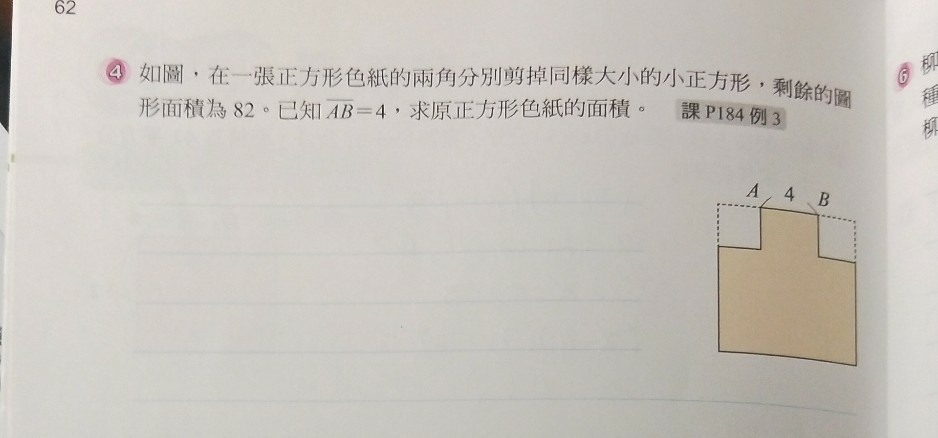 62
④ 如圖，在一張正方形色紙的兩角分別剪掉同樣大小的小正方形，剩餘的圖
形面積為 82。已知 AB＝4，求原正方形色紙的面積。 課 P184 例 3
A 4 B
⑥ 柳
種
柳